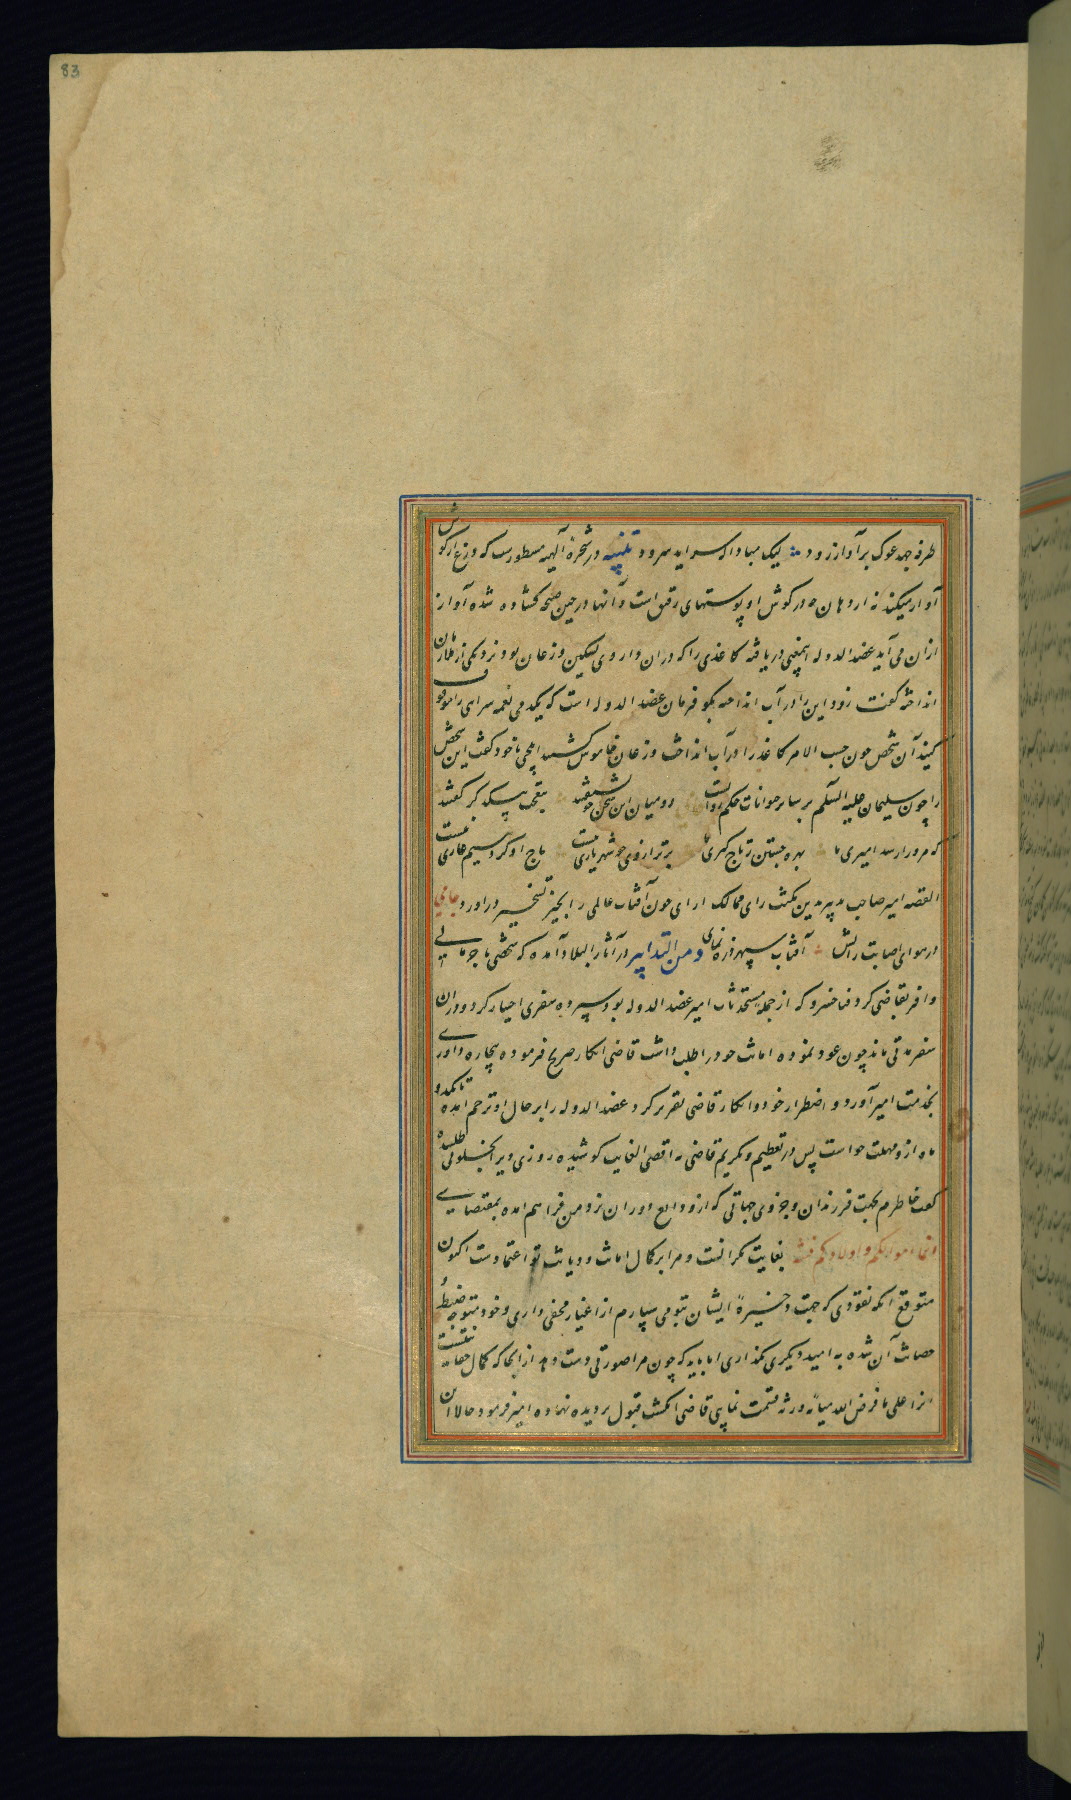 83
طرفه جمد غوک بر آواز زود لیک مبادا که سراید سرود تنبیه در شجرهٔ آلهیه مسطورست که وزغ از گوش
آواز میکند نه از دهان در گوش او پوستهای رقیق است و آنها در حین صیحه گشاده شده آواز
ازان می آید عضد الدوله اینمعنی دریافته کاغذی را که دران داروی تسکین وزغان بود نزد یکی از ملازمان
انداخته گفت زود این را در آب انداخته بگو فرمان عضد الدوله است که یکدمی نغمه سرای را موقوف
کنید آن شخص چون حسب الامر کاغذ را در آب انداخت وزغان خاموش گشتند ایلچی با خود گفت این شخص
را چون سلیمان علیه السلم بر سایر حیوانات حکم روانست دو میان این سخن شنفتند بتعجب بیکدیگر گفتند
که مرورا رسد امیری ما بهره جستن ز تاج کبری ما برتر از وی چو شهریاری نیست تاج او کرد سیم عاری نیست
القصه امیر صاحب تدبیر بدین نکث رای ممالک ارای چون آفتاب عالمی را بحیز تسخیر دراورد جامی
در هوای اصابت رایش آفتاب سپهر ذره نمای و من التدابیر در آثار البلاد آمده که شخصی با جرمانی
وافر بقاضی گرد فناخسرو که از جمله مستحدثات امیر عضد الدوله بود سپرده سفری اختیار کرد و دران
سفر مدتی ماند چون عود نموده امانت خود را طلب داشت قاضی انکار صریح فرموده بیچاره داوری
بخدمت امیر آورد و اضطرار خود و انکار قاضی تقریر کرد عضد الدوله را بر حال او ترحم آمده تا یکدو
ماه ازو مهلت خواست پس در تعظیم و تکریم قاضی به اقصی الغایت کوشیده روزی ویرا بخلوتی طلبیده
گفت خاطرم بجهت فرزندان و جزوی جهاتی که از ودایع دوران نزد من فراهم آمده بمقتضای
انما اموالکم و اولادکم فتنة بغایت نگرانست و مرا بر کمال امانت و دیانت تو اعتمادست اکنون
متوقع انکه نقودی که جهت ذخیرهٔ ایشان بتو می سپارم از اغیار مخفی داری و خود متوجه ضبط
حصانت آن شده به امید دیگری نگذاری اما باید که چون مرا صورتی دست دهد از انجا که کمال حقانیتست
انرا علی ما فرض الله میانه ورثه قسمت نمایی قاضی انگشت قبول بر دیده نهاده امیر فرمود حالا این